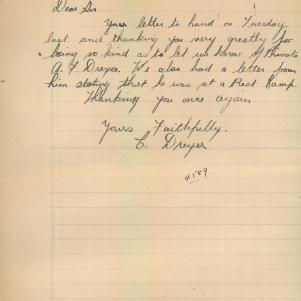 Dear Sir
Your letter to hand on Tuesday
last and thanking you very greatly for
being so kind as to let us know of Private
A. F. Dreyer. We also had a letter from
him stating that he was at a Rest Camp
Thanking you once again
Yours Faithfully.
C. Dreyer
4589